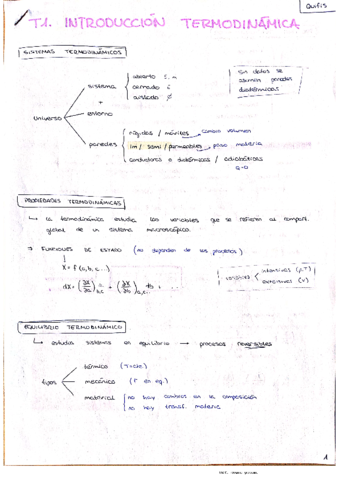 Quifis
T.1. INTRODUCCIÓN TERMODINÁMICA
SISTEMAS TERMODINÁMICOS
Universo
sistema
abierto
cerrado
aislado
+
entorno
paredes
rígidas / móviles → cambia volumen
im / semi / permeables → pasa materia
conductoras o diatérmicas / adiabáticas
Q=0
Sin datos se
asumen paredes
diatérmicas
PROPIEDADES TERMODINÁMICAS
↳ la termodinámica estudia las variables que se refieren al comport.
global de un sistema macroscópico.
→ FUNCIONES DE ESTADO (no dependen de los procesos)
X = f (a, b, c...)
variables
intensivas (P, T)
extensivas (V)
EQUILIBRIO TERMODINÁMICO
↳ estudia sistemas en equilibrio → procesos reversibles
tipos
térmico (T=cte.)
mecánico (F en eq.)
material
no hay cambios en la composición
no hay transf. materia
1